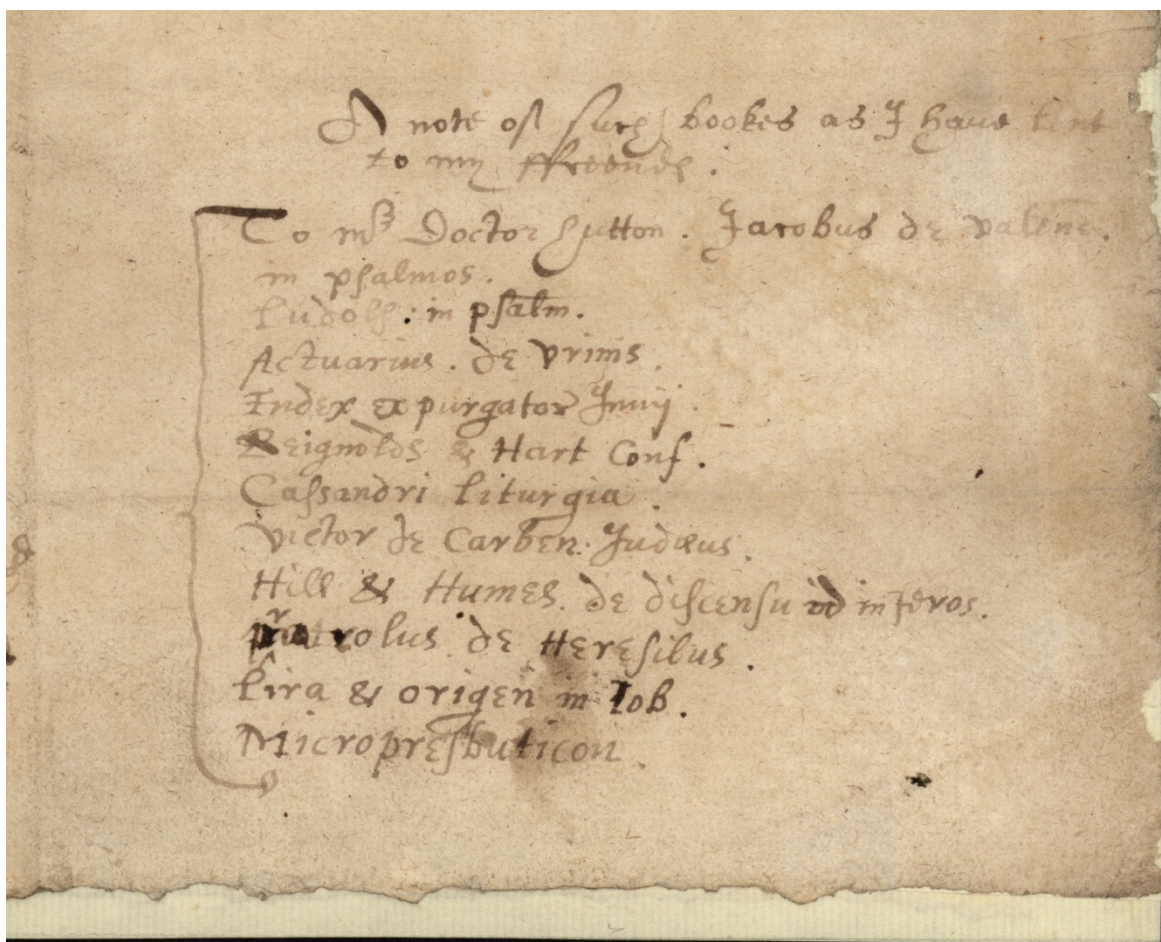 A note of such bookes as I haue lent
to my ffreends.
To mr Doctor Sutton. Jacobus de valenc.
in psalmos.
Ludolf: in psalm.
Actuarius. de vrinis.
Index expurgator Junij
Reignolds & Hart Conf.
Cassandri liturgia.
Victor de Carben. Judæus.
Hill & Humes. de discensu ad inferos.
de Heresibus.
Lira & origen in Iob.
Micropresbuticon.